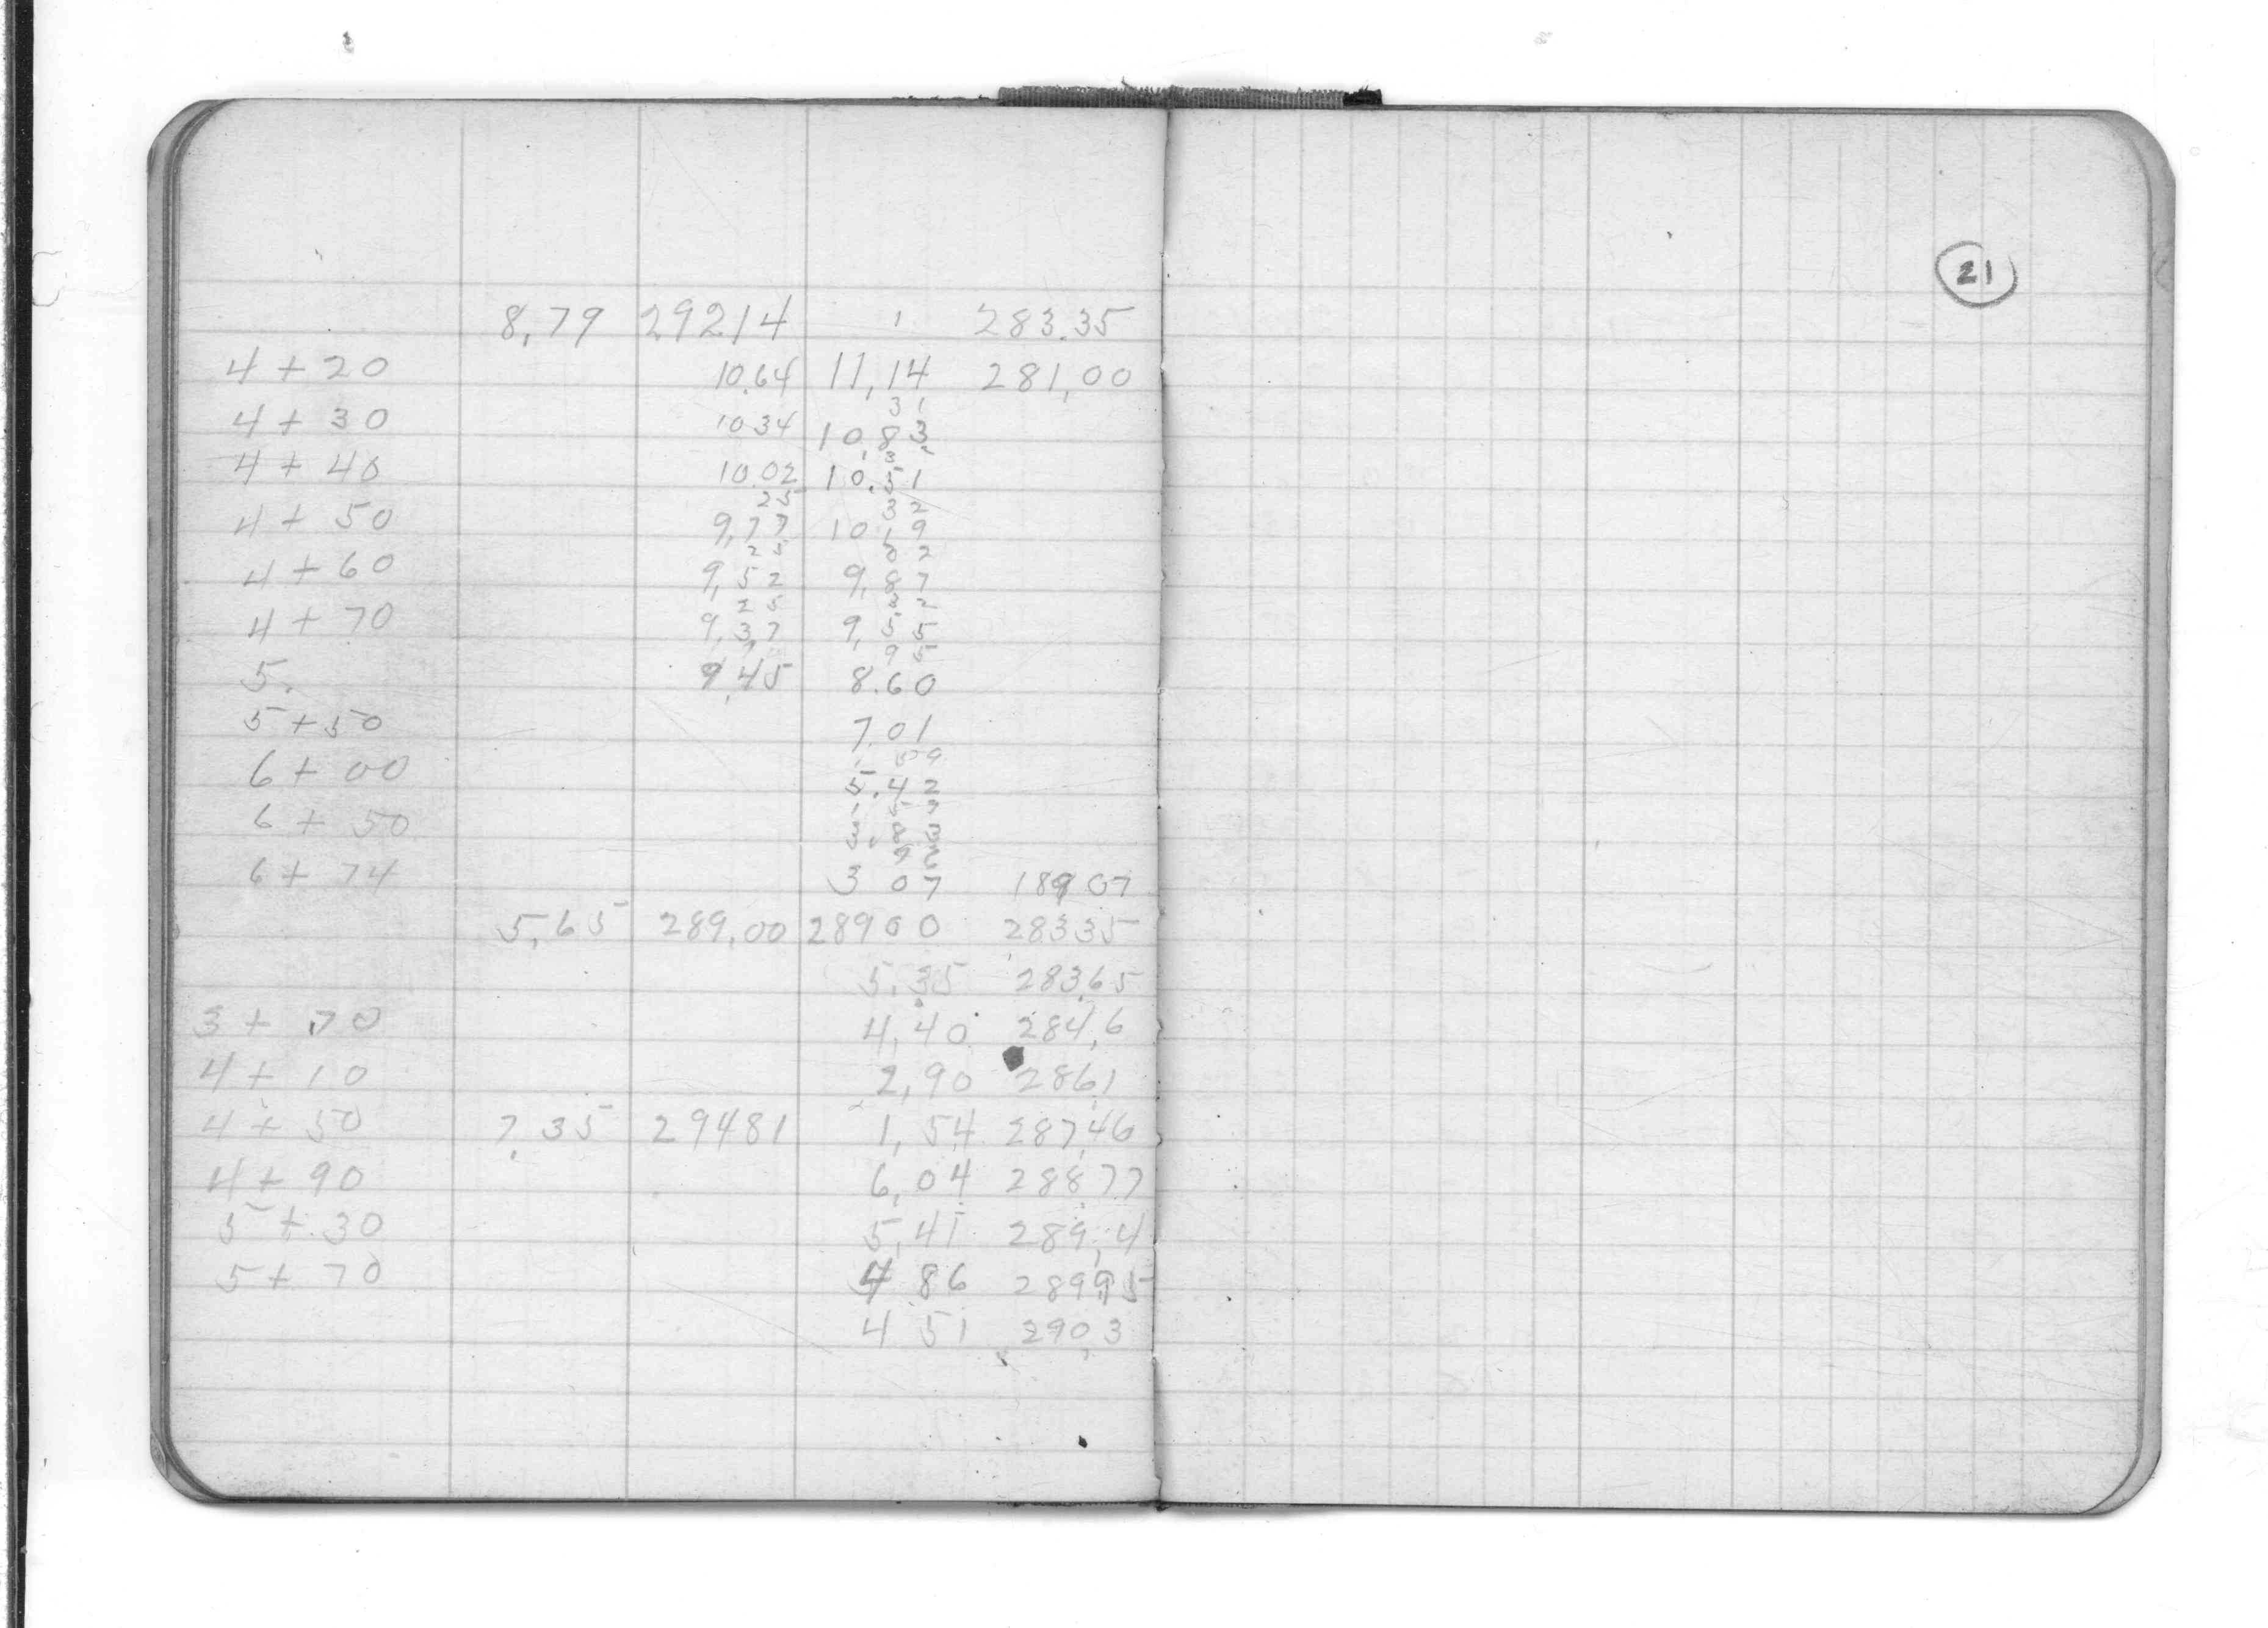 8,79 29214 283.35
4 + 20 10.64 11,14 281,00
31
4 + 30 1034 10,83
4 + 40 10.02 10.51
25 32
4 + 50 9,77 10,19
25 32
4 + 60 9,52 9,87
25 32
4 + 70 9,37 9,55
95
5. 9,45 8.60
5 + 50 7.01
1 59
6 + 00 5.42
1 59
6 + 50 3.83
6 + 74 3 07 189 07
5,65 289,00 28900 28335
5.35 283.65
3 + 70 4,40 284,6
4 + 10 2,90 286,1
4 + 50 7.35 29481 1,54 287,46
4 + 90 6,04 288,77
5 + 30 5,41 289,4
5 + 70 4 86 28995
4 51 290,3
21